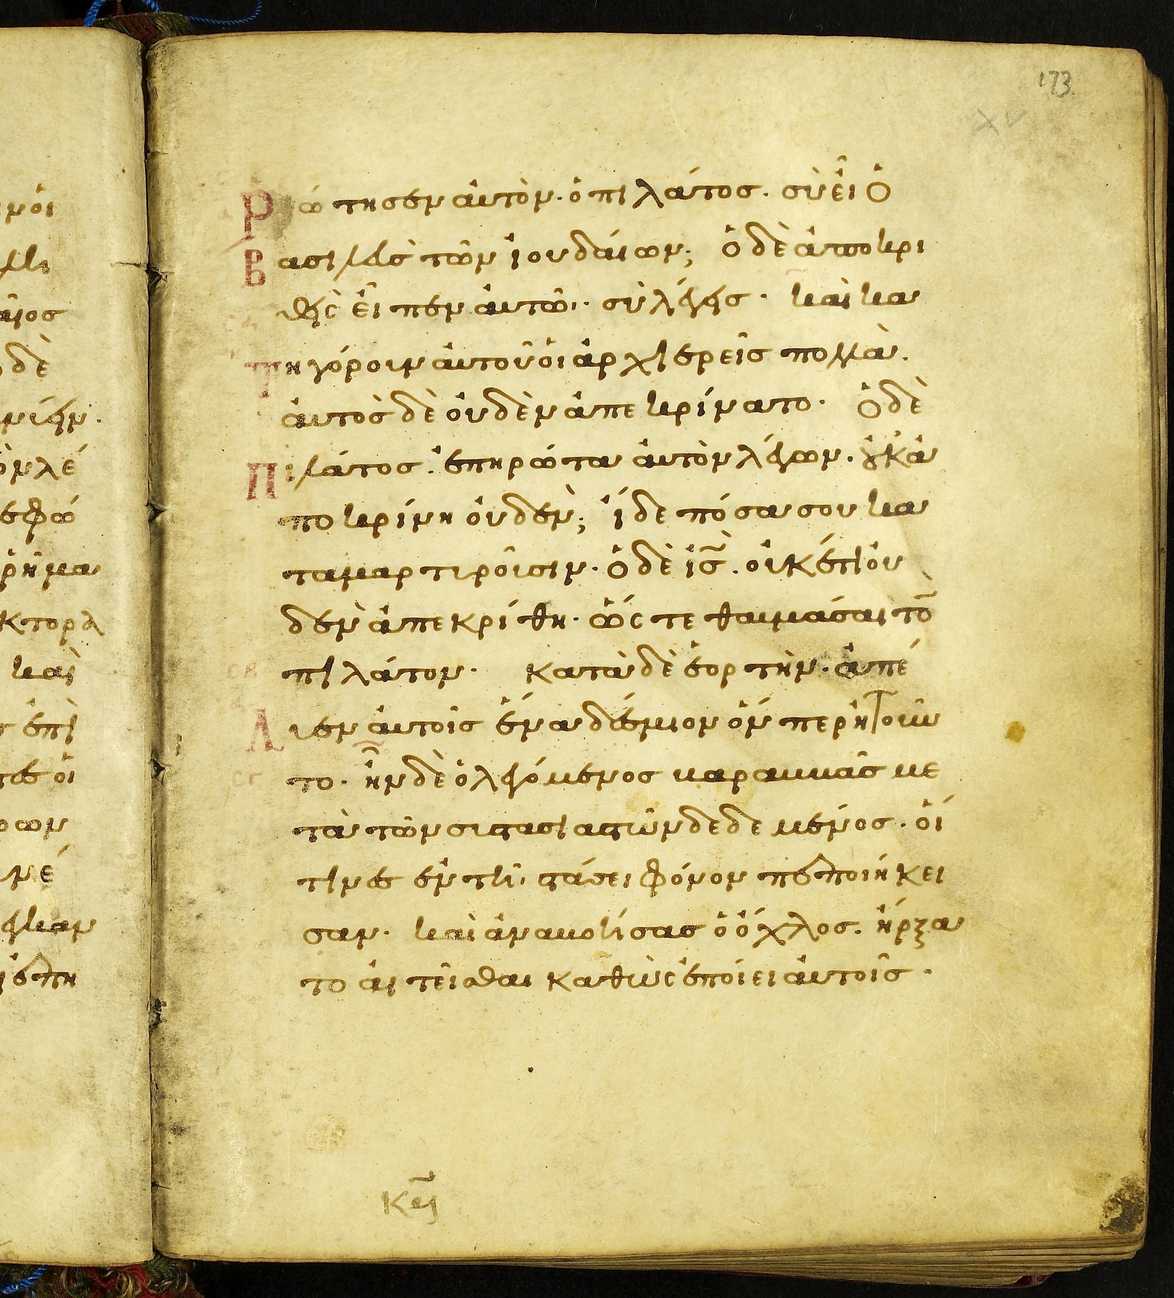 173
XV
Ρώτησεν αὐτὸν· ὁ πιλάτος· σὺ εἶ ὁ
Βασιλεὺς τῶν ἰουδαίων; ὁ δὲ ἀποκρι
θεὶς εἶπεν αὐτῶ· σὺ λέγεις· καὶ κα
Τηγόρουν αὐτοῦ οἱ ἀρχιερεῖς πολλὰ.
αὐτὸς δὲ οὐδὲν ἀπεκρίνατο· ὁ δὲ
Πιλάτος· ἐπηρώτα αὐτὸν λέγων· οὐκ ἀ
ποκρίνη οὐδεν; ἴδε πόσα σου κα
ταμαρτυροῦσιν· ὁ δὲ ἰς̅. οὐκέτι οὐ
δεν ἀπεκρίθη· ὥς τε θαυμάσαι τὸ̅
πιλάτον· κατὰ δὲ ἑορτὴν· ἀπέ
Λυεν αὐτοῖς ἕνα δέσμιον ὃν περ ἠτουν
το· ἦν δὲ ὁ λεγόμενος βαραββᾶς με
τὰ τῶν συστασιαστῶν δεδεμένος· οἵ
τινες ἐν τῆ στάσει φόνον πεποιήκει
σαν· καὶ ἀναβοήσας ὁ ὄχλος· ἤρξα
το αἰτεῖσθαι καθὼς ἐποίει αὐτοῖς·
μόι
αῖος
δὲ
νλέ
ρῆμα
κτορα
καὶ
ἐπὶ
οἱ
νέ